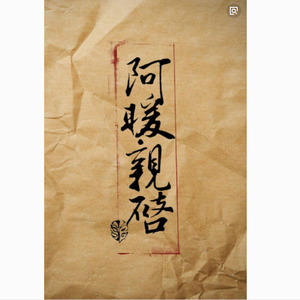 阿暖親啓